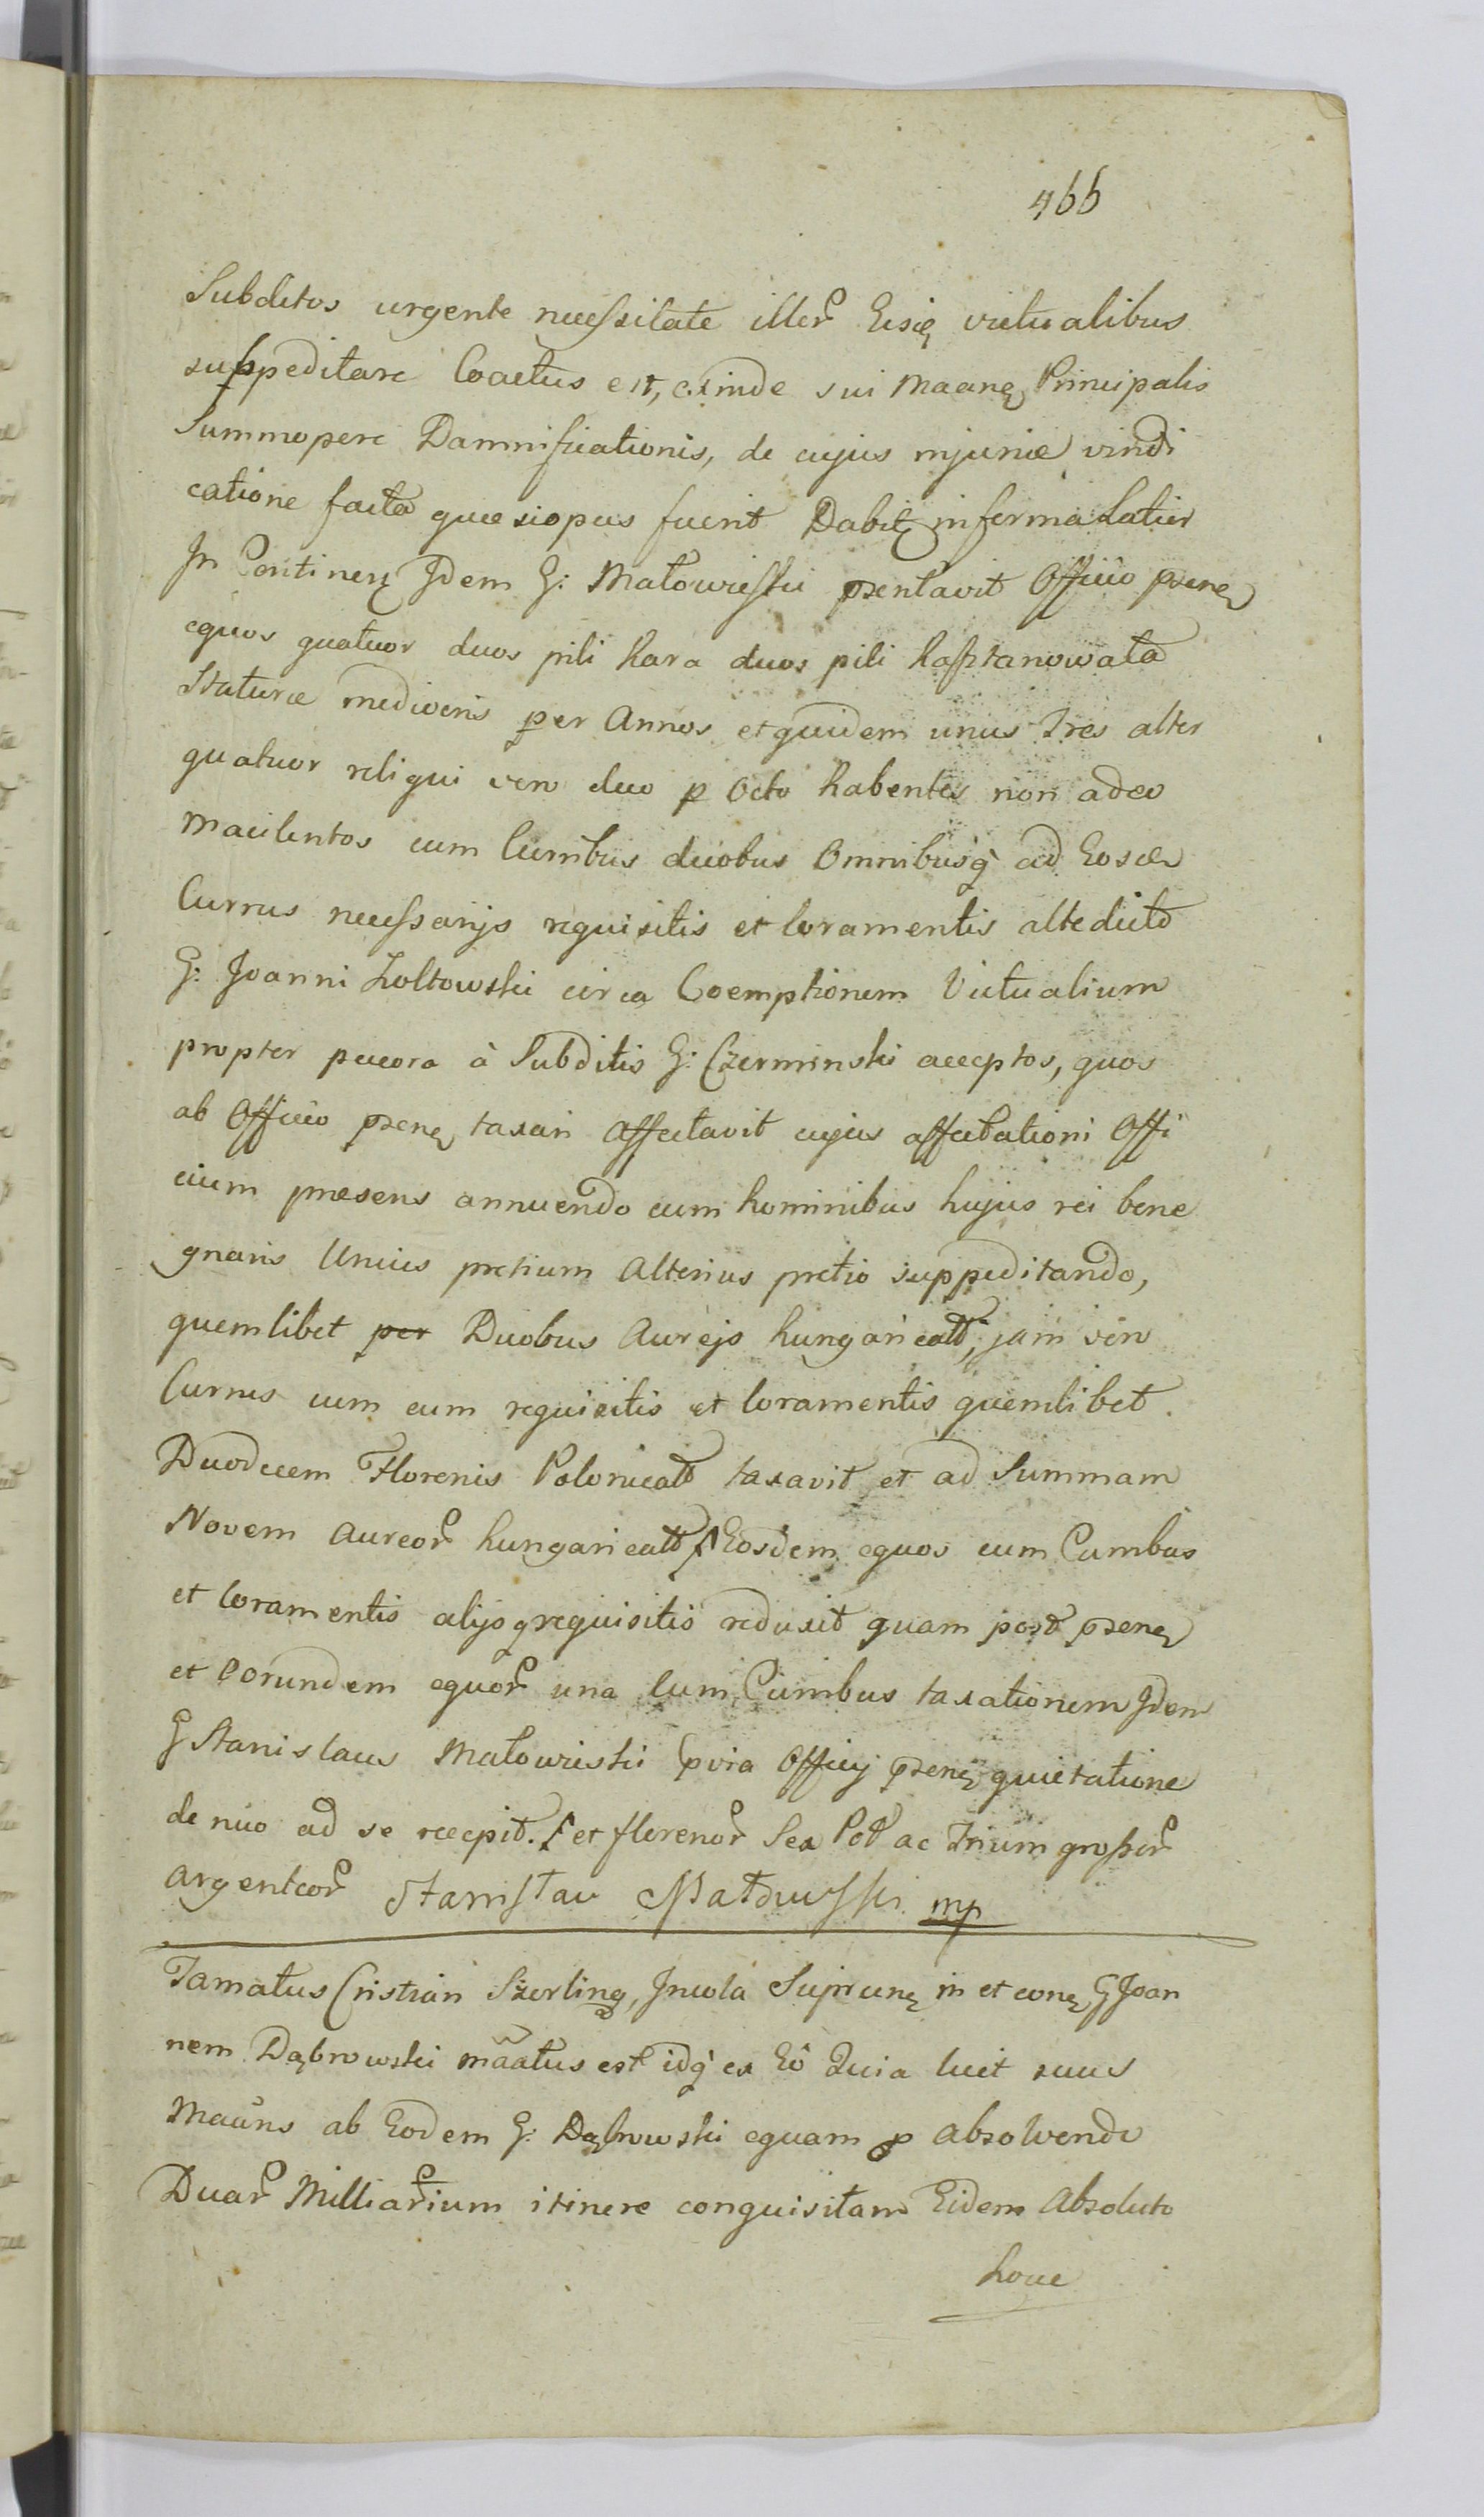 466
Subditos urgente necessitate illor Eisq victualibus
suppeditare Coactus est, exinde sui Maanq Principalis
Summopere Damnificationis, de cujus injuriæ vindi
catione facta quæ si opus fuerit Dabit informa latius
In Continen Idem G: Małowieski pzentavit Officio pzenq
equos quatuor duos pili kara duos pili kasztanowata
Staturæ mediocris per Annos et quidem unus Tres alter
quatuor reliqui vero duo p Octo habentes non adeo
Macilentos cum Curribus duobus Omnibusq ad Eosdem
Currus necessarijs requisitis et loramentis alte dicto
G: Joanni Zołtowski circa Coemptionem Victualium
propter pecora à Subditis G: Czerminski acceptos, quos
ab Officio pzenq taxari Affectavit cujus affectationi Offi
cium præsens annuendo cum hominibus hujus rei bene
gnaris Unius pretium Alterius pretio suppeditando,
quemlibet per Duobus Aureis hungaricalt, jam vero
Currus cum eum requisitis et loramentis quemlibet
Duodecem Florenis Polonicalt taxavit et ad Summam
Novem Aureor hungaricalt Eosdem equos cum Curribus
et loramentis alijsq requisitis reduxit quam post pzenq
et Eorundem equor una Cum Curribus taxationem Idem
G Stanislaus Małowieski pvia Officij pzenq quietatione
de nuo ad se recepit. et florenor Sex Pol ac Trium grossor
Argenteor Stanisław Małowieski mp
Tamatus Cristian Szerling, Incola Suprunq in et conq G Joan
nem Dąbrowski maatus est idq ex Eô Quia licet suus
Maans ab Eodem G: Dąbrowski equam p absolvendo
Duar Milliarium itinere conquisitam Eidem Absoluto
hocce